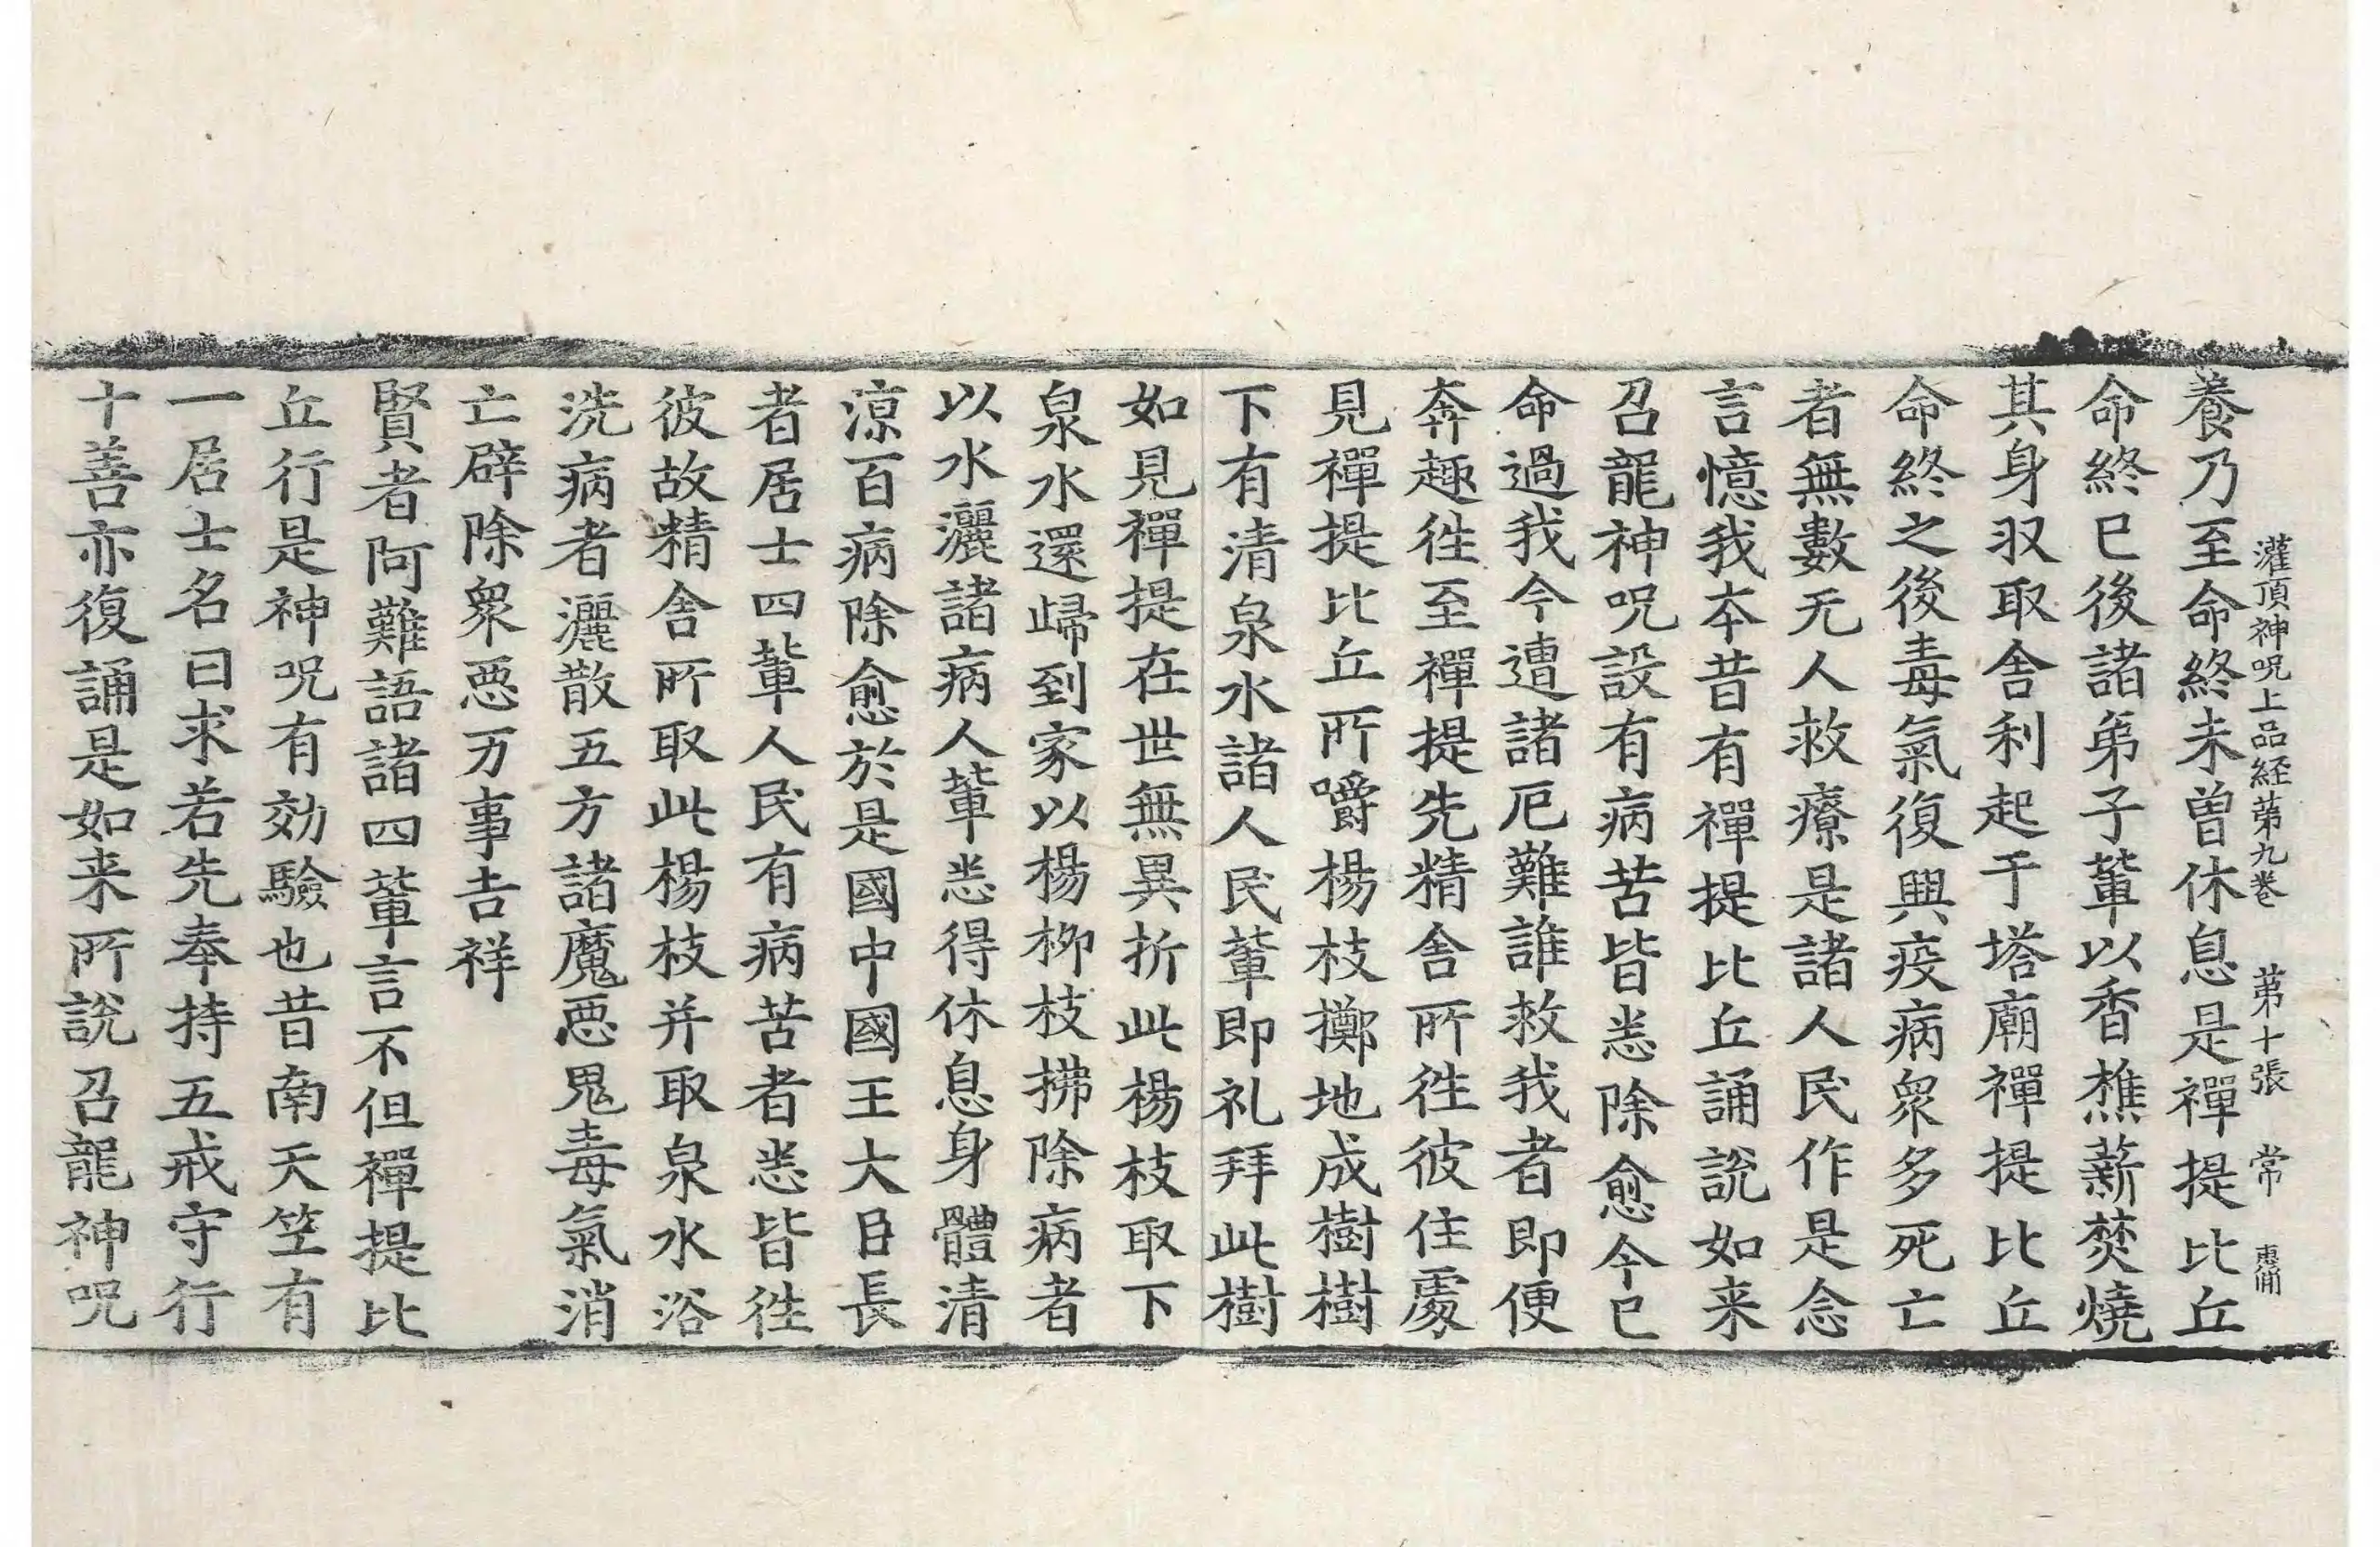 灌頂神呪上品経苐九卷 苐十張 常 惠俌
養乃至命終未曽休息是禪提比丘
命終已後諸弟子軰以香樵薪焚燒
其身収取舍利起于塔廟禪提比丘
命終之後毒氣復興疫病衆多死亡
者無數无人救療是諸人民作是念
言憶我夲昔有禪提比丘誦説如来
召龍神呪設有病苦皆悉除愈今已
命過我今遭諸厄難誰救我者即便
奔趣徃至禪提先精舍所徃彼住處
見禪提比丘所嚼楊枝擲地成樹樹
下有清泉水諸人民軰即礼拜此樹
如見禪提在世無異折此楊枝取下
泉水還歸到家以楊柳枝拂除病者
以水灑諸病人軰悉得休息身體清
涼百病除愈於是國中國王大臣長
者居士四軰人民有病苦者悉皆徃
彼故精舍所取此楊枝并取泉水浴
洗病者灑散五方諸魔惡鬼毒氣消
亡辟除衆惡万事吉祥
賢者阿難語諸四軰言不但禪提比
丘行是神呪有効驗也昔南天竺有
一居士名曰求若先奉持五戒守行
十善亦復誦是如来所説召龍神呪